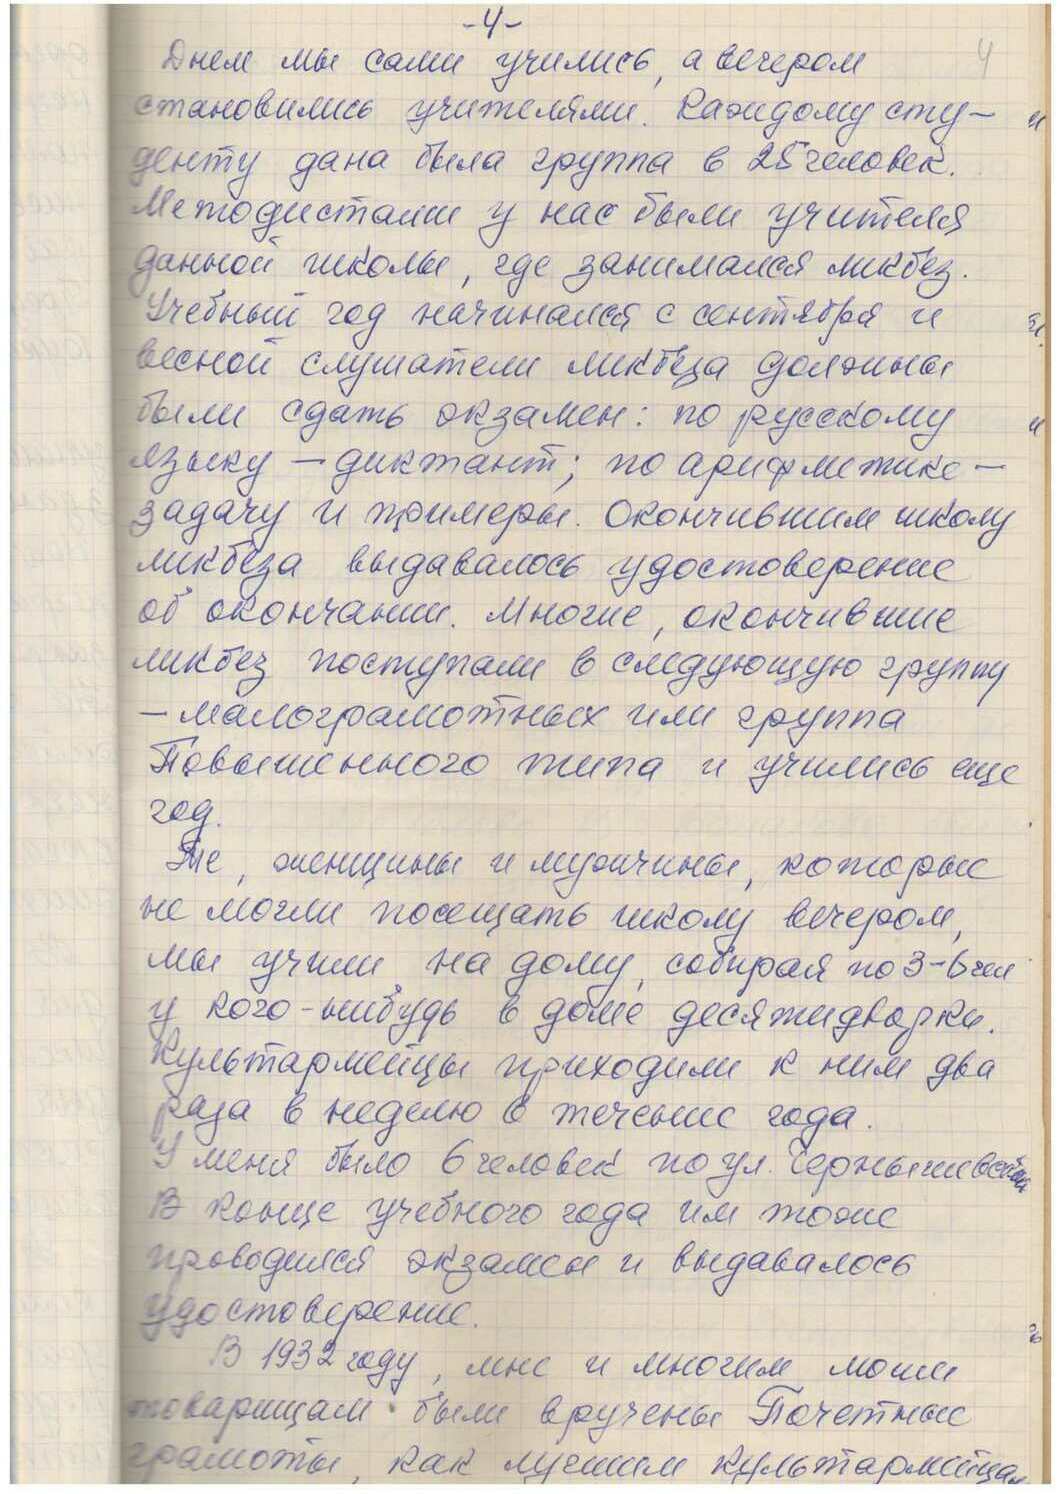 -4-
4
Днем мы сами учились, а вечером
становились учителями. Каждому сту-
денту дана была группа в 25 человек.
Методистами у нас были учителя
данной школы, где занимался ликбез.
Учебный год начинался с сентября и
весной слушатели ликбеза должны
были сдать экзамен: по русскому
языку – диктант; по арифметике –
задачу и примеры. Окончившим школу
ликбеза выдавалось удостоверение
об окончании. Многие, окончившие
ликбез поступали в следующую группу
– малограмотных или группа
Повышенного типа и учились еще
год.
Те, женщины и мужчины, которые
не могли посещать школу вечером,
мы учили на дому, собирая по 3-6 чел
у кого-нибудь в доме десятидворки.
Культармейцы приходили к ним два
раза в неделю в течение года.
У меня было 6 человек по ул. Чернышевского
В конце учебного года им тоже
проводился экзамен и выдавалось
удостоверение.
В 1932 году, мне и многим моим
товарищам были вручены Почетные
грамоты, как лучшим культармейцам